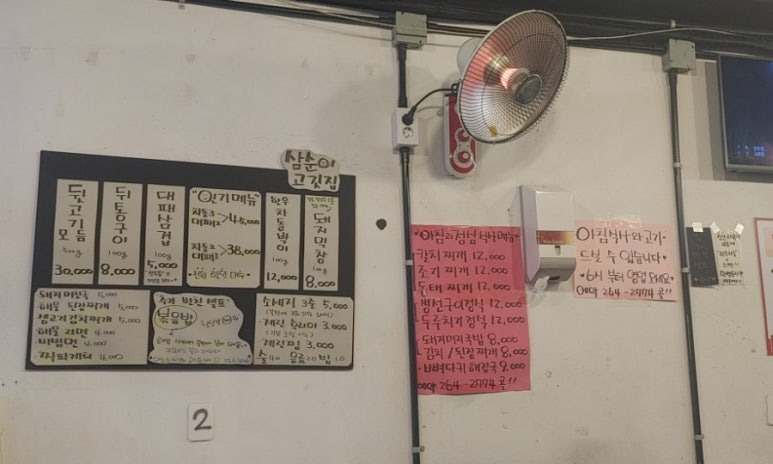 삼순이
고깃집
뒷고기
모듬
500g
30,000
뒤통구이
100g
8,000
대패삼겹
100g
5,000
"인기메뉴"
차돌3
대패2 > 45,000
차돌2
대패3 > 38,000
한우
차돌박이
100g
12,000
돼지막창
100g
8,000
돼지머릿국 5,000
해물 된장찌개 5,000
생고기김치찌개 5,000
해물 라면 4,000
비빔면 4,000
짜파게티 4,000
추가 반찬 셀프
볶음밥
소세지 3줄 5,000
계란 후라이 3,000
계란찜 3,000
술 4.0 음료 2.0 밥 1.0
2
*아침과점심 식사메뉴*
갈치찌개 12,000
조기찌개 12,000
동태찌개 12,000
두루치기정식 12,000
돼지머리국밥 8,000
김치/된장찌개 8,000
뼈다귀 해장국 9,000
예약 264-2774 콜!!
아침식사와고기
드실수 있습니다
*6시 부터 영업 하세요*
예약 264-2774 콜!!